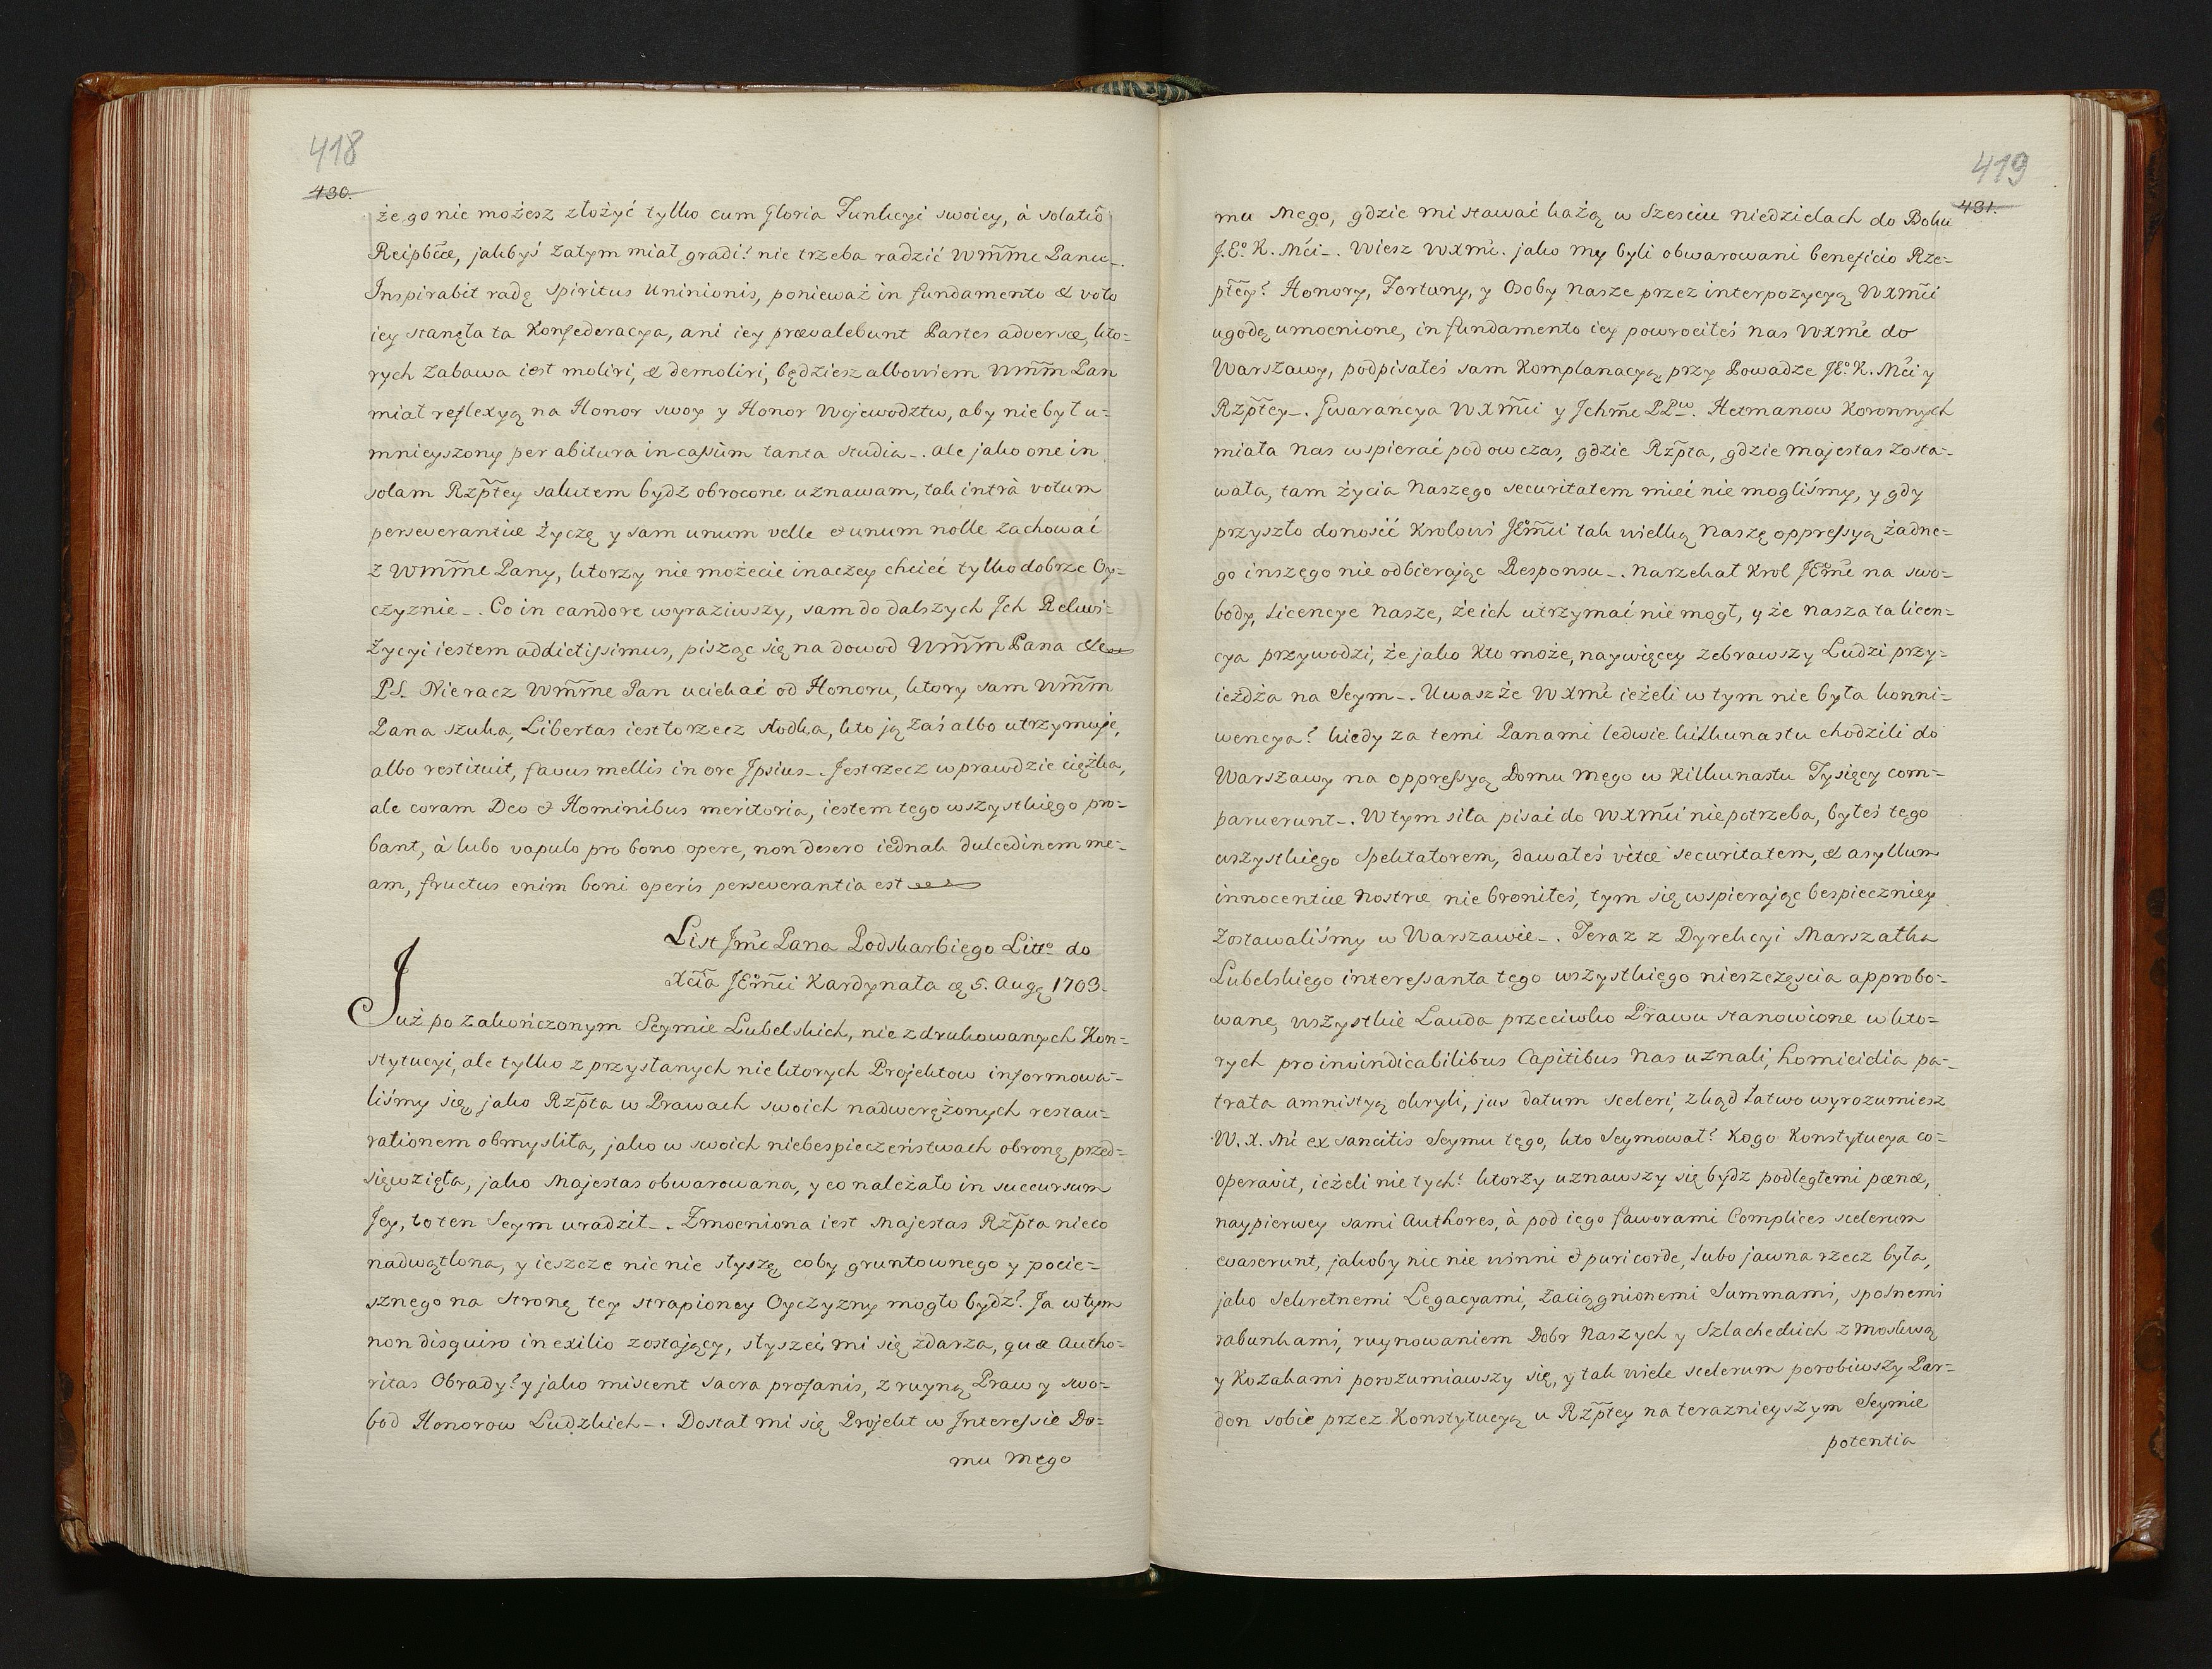 418
430.
że go nie możesz złożyć tylko cum Gloria Funkcyi swoiey, à solatiô
Reipb̃cæ, jakbyś zatym miał gradi? nie trzeba radzić Wm̃m̃c Panu_.
Inspirabit radę Spiritus Uninionis, ponieważ in fundamento & voto
iey stanęła ta Konfederacya, ani iey prævalebunt Partes adversæ, kto=
rych zabawa iest moliri, & demoliri, będziesz albowiem Wm̃m̃ Pan
miał reflexyą na Honor swoy y Honor Wojewodztw, aby nie był u=
mnieyszony per abitura in caſsùm tanta studia_. Ale jako one in
solam Rzp̃tey salutem bydz obrocone uznawam, tak intrà votum
perseverantiæ życzę y sam unum velle & unum nolle zachować
z Wm̃m̃c Pany, ktorzy nie możecie inaczey chcieć tylko dobrze Oy=
czyznie_. Co in candore wyraziwszy, sam do dalszych Jch Rekwi=
zycyi iestem addictiſsimus, pisząc się na dowod Wm̃m̃ Pana &c
P.S. Nieracz Wm̃m̃c Pan uciekać od Honoru, ktory sam Wm̃m̃
Pana szuka, Libertas iest to rzecz słodka, kto ją zaś albo utrzymuje,
albo restituit, favus mellis in ore Ipsius_. Jest rzecz wprawdzie ciężka,
ale coram Deo & Hominibus meritoria, iestem tego wszystkiego pro=
bant, à lubo vapulo pro bono opere, non desero iednak dulcedinem me=
am, fructus enim boni operis perseverantia est
List Jm̃c Pana Podskarbiego Litt̊ do
Xcĩa JEm̃ci Kardynała ą 5. Augę 1703.
Już po zakończonym Seymie Lubelskich, nie z drukowanych Kon=
stytucyi, ale tylko z przysłanych niektorych Projektow informowa=
liśmy się, jako Rzp̃ta w Prawach swoich nadwerężonych restau=
rationem obmyslita, jako w swoich niebespieczeństwach obronę przed=
sięwzięła, jako Majestas obwarowana, y co należało in succursum
Jey, to ten Seym uradził_. Zmocniona iest Majestas Rzp̃ta nieco
nadwątlona, y ieszcze nic nie słyszę coby gruntownego y pocie=
sznego na stronę tey strapioney Oyczyzny mogło bydz? Ja w tym
non disquiro in exilio zostający, słyszeć mi się zdarza, quæ Autho=
ritas Obrady? y jako miscent sacra profanis, z ruyną Praw y swo=
bod Honorow Ludzkich_. Dostał mi się Projekt w Intereſsie Do=
mu mego
419
431.
mu mego, gdzie mi stawać każą w Sześciu niedzielach do Boku
J.E.º K. Mći_. Wiesz WXm̃ć. jako my byli obwarowani beneficio Rze=
pt̃ey? Honory, Fortuny, y Osoby Nasze przez interpozycyą WXm̃ci
ugodą umocnione, in fundamento iey powrociłeś nas WXm̃c do
Warszawy, podpisałeś sam Komplanacyą przy Powadze JE.º K. Mći y
Rzp̃tey_. Gwarancya WXm̃ci y Jchm̃c PP.ow Hetmanow Koronnych
miała Nas wspierać pod ow czas, gdzie Rzp̃ta, gdzie Majestas zosta=
wała, tam życia Naszego securitatem mieć nie mogliśmy, y gdy
przyszło donosić Krolowi JEm̃ci tak wielką Naszę oppreſsyą żadne=
go inszego nie odbierając Responsu_. Narzekał Krol JEm̃ć na swo=
body, Licencye Nasze, że ich utrzymać nie mogł, y że Nasza ta licen=
cya przywodzi, że jako Kto może, naywięcey zebrawszy Ludzi przy=
ieżdża na Seym_. Uważże WXm̃ć ieżeli w tym nie była konni=
wencya? kiedy za temi Panami ledwie kilkunastu chodzili do
Warszawy na oppreſsyą Domu mego w Kilkunastu Tysięcy com=
paruerunt_. W tym siła pisać do WXm̃ci niepotrzeba, byłeś tego
wszystkiego Spektatorem, dawałeś vitæ securitatem, & asyllum
innocentiæ Nostræ nie broniłeś, tym się wspierając bespieczniey
zostawaliśmy w Warszawie_. Teraz z Dyrekcyi Marszałka
Lubelskiego intereſsanta tego wszystkiego nieszczęscia approbo=
wane, wszystkie Lauda przeciwko Prawu stanowione w kto=
rych pro invindicabilibus Capitibus Nas uznali, homicidia pa=
trata amnistyą okryli, jus datum sceleri, zkąd łatwo wyrozumiesz
W.X.Mć ex sancitis Seymu tego, kto Seymował? Kogo Konstytucya co=
operavit, ieżeli nie tych? ktorzy uznawszy się bydz podległemi pœnæ,
naypierwey sami Authores, à pod iego faworami Complices scelerum
evaserunt, jakoby nic nie winni & puri corde, lubo jawna rzecz była,
jako Sekretnemi Legacyami, zaciągnionemi Summami, sposnemi
rabunkami, ruynowaniem Dobr Naszych y Szlacheckich z Moskwą
y Kozakami porozumiawszy się, y tak wiele scelerum porobiwszy Par=
don sobie przez Konstytucyą u Rzp̃tey na terazniejszym Seymie
potentia